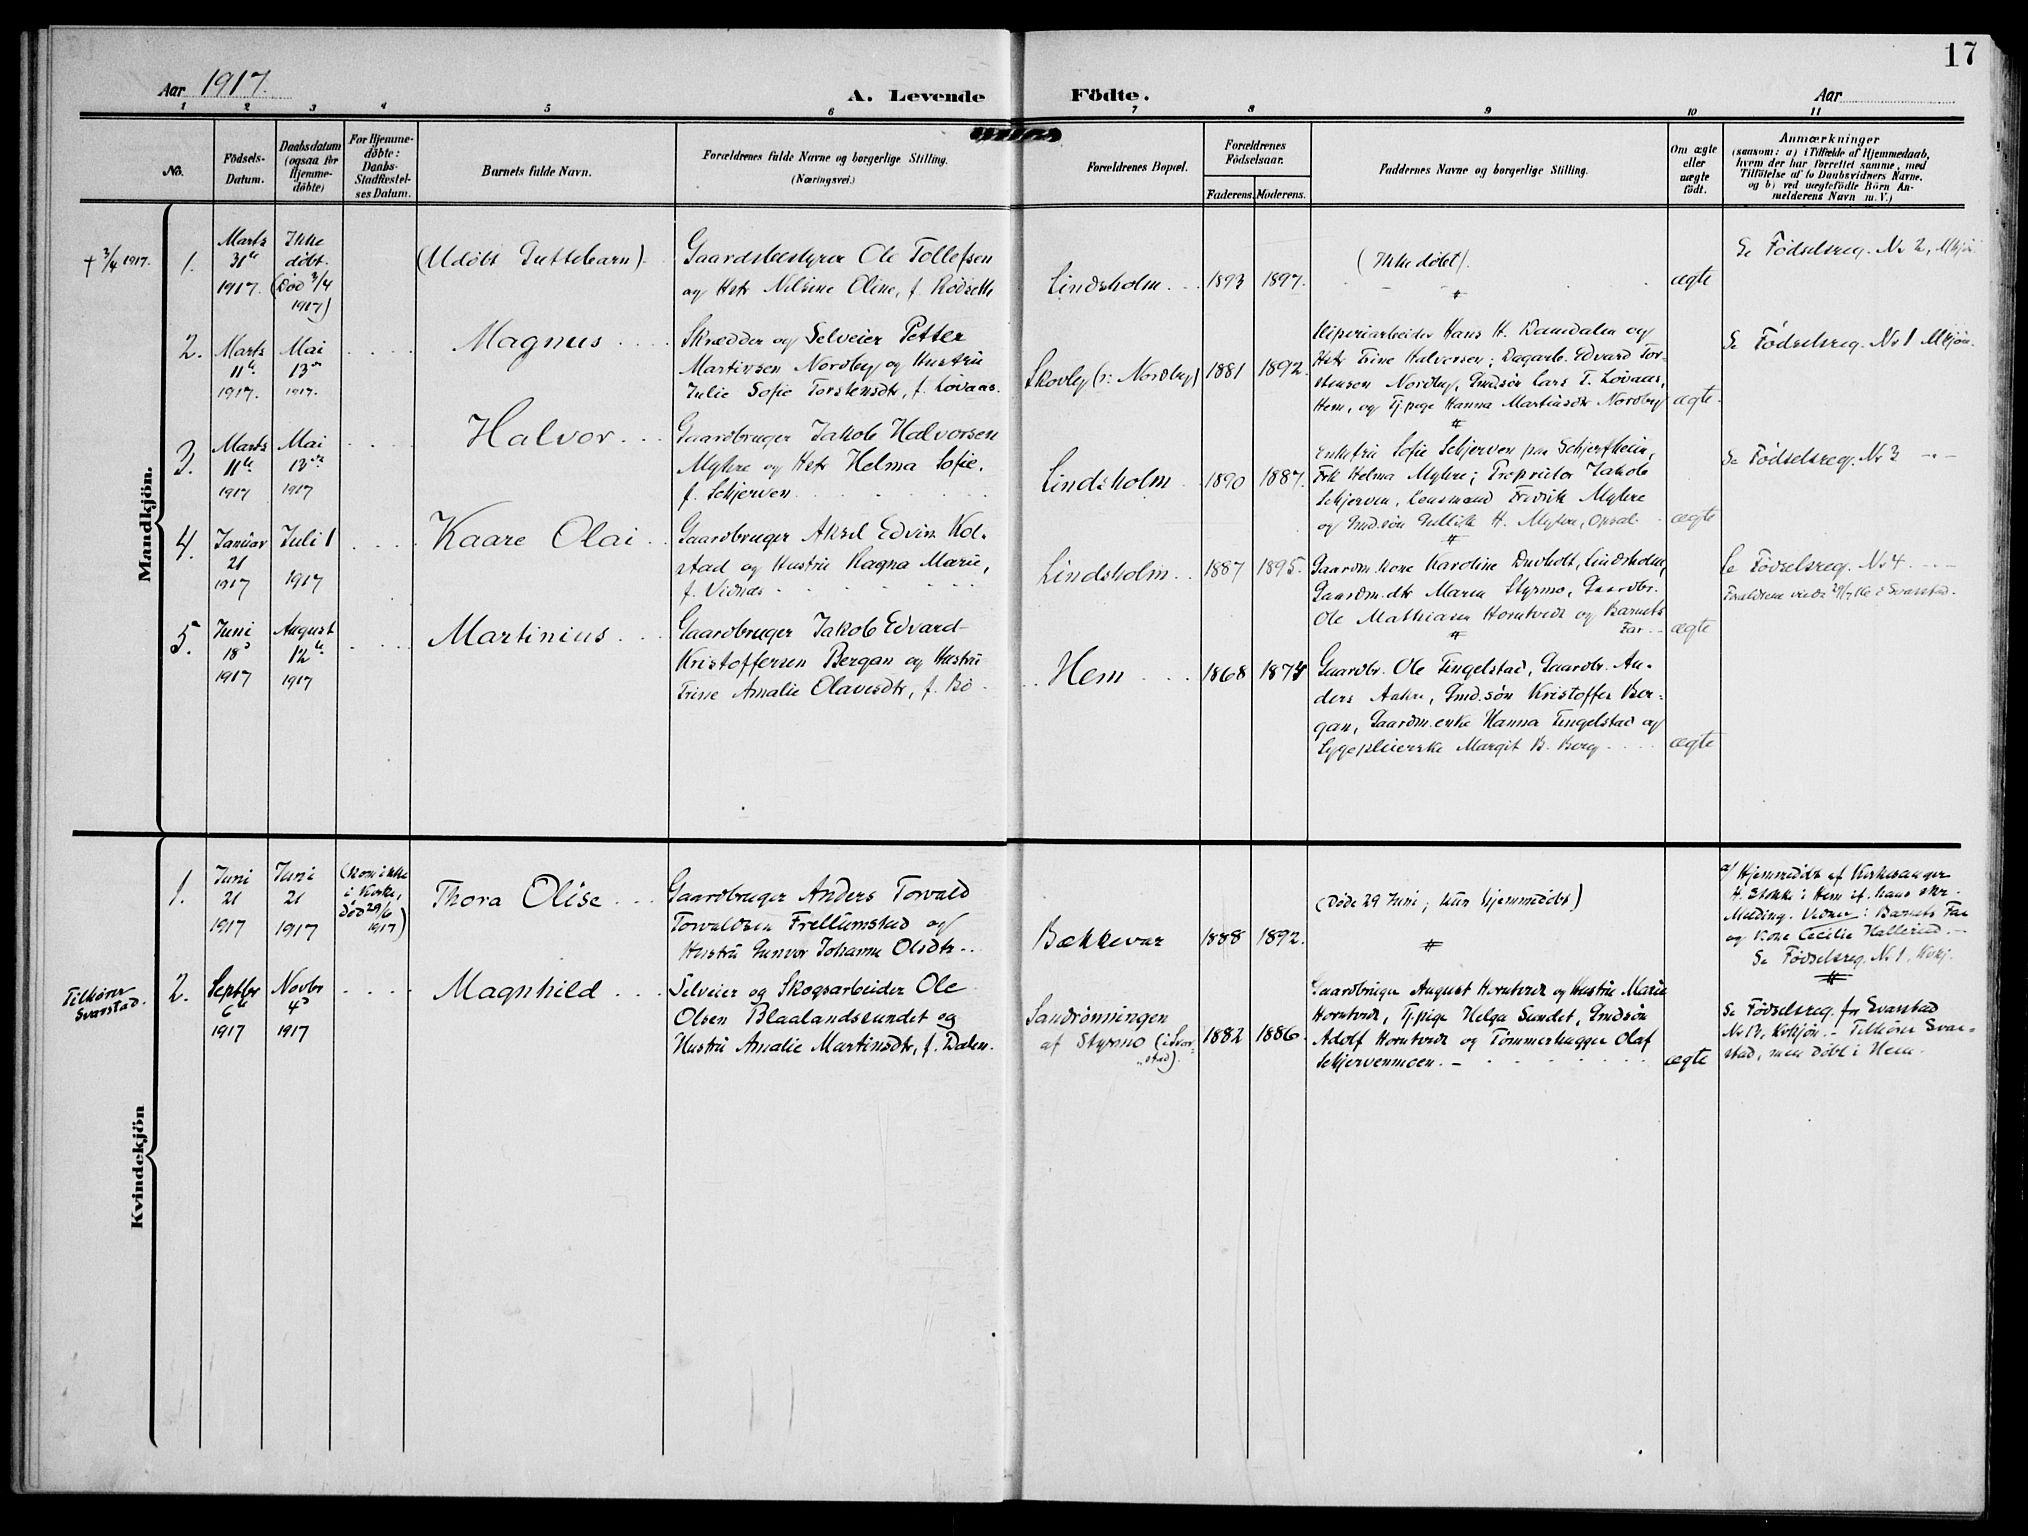 17
Aar 1917.
A. Levende Födte.
Aar
1 2 3 4 5 6 7 8 9 10 11
No.
Födsels-
Datum.
Daabsdatum
(ogsaa for
Hjemme-
döbte)
For Hjemme-
döbte:
Daabs-
Stadfæstel-
ses Datum.
Barnets fulde Navn.
Forældrenes fulde Navne og borgerlige Stilling.
(Næringsvei.)
Forældrenes Bopæl.
Forældrenes
Födselsaar.
Faderens. Moderens.
Faddernes Navne og borgerlige Stilling.
Om ægte
eller
uægte
födt.
Anmærkninger
(saasom: a) i Tilfælde af Hjemmedaab,
hvem der har forrettet samme, med
Tilföielse af to Daabsvidners Navne.
og b) ved uægtefödte Börn An-
melderens Navn m. V.)
Mandkjön.
† 3/4 1917.
1.
Marts
31te
1917.
Ikke
døbt.
(Død 3/4
1917)
(Udøbt Guttebarn)
Gaardsbestyrer Ole Tollefsen
og Hstr Nilsine Oline, f. Rødseth
Lindsholm
1893
1897.
(Ikke døbt).
ægte
Se Fødselsreg. Nr 2, Mkjøn
2.
Marts
11te
1917.
Mai
13de
1917.
Magnus
Skrædder og Selveier Petter
Martinsen Nordby og Hustru
Julie Sofie Torstensdtr, f. Lovaas.
Skovley (v: Nordby)
1881
1892.
Sliperiarbeider Hans H. Damdalen og
Hstr Trine Halvorsen; Dagarb. Edvard Tor-
stensen Nordby, Gmdsøn Lars T. Løvaas,
Hem, og Tj.pige Hanna Martinsdtr Nordby
ægte.
Se Fødselsreg. Nr 1 Mkjøn.
3.
Marts
11te
1917
Mai
13de
1917
Halvor
Gaardbruger Jakob Halvorsen
Myhre og Hstr Helma Sofie,
f. Schjerven
Lindsholm
1890
1887.
Enkefru Sofie Schjerven paa Schjerfheim,
Frk Helma Myhre; Proprietær Jakob
Schjerven, Lensmand Fredrik Myhre
og Gmd.søn Gullik H. Myhre, Opsal
ægte
Se Fødselsreg. Nr 3
4.
Januar
21
1917
Juli 1
1917
Kaare Olai
Gaardbruger Aksel Edvin Kol-
stad og Hustru Ragna Marie,
f. Vidnæs
Lindsholm
1887
1895.
Gaardm.kone Karoline Duvholt, Lindsholm,
Gaardm.dtr Maren Styrmo, Gaardbr.
Ole Mathiasen Horntvedt og Barnets
Far
ægte
Se Fødselsreg. Nr 4
Forældrene viede 29/7 16 i Svarstad.
5.
Juni
18de
1917
August
12te
1917
Martinius
Gaardbruger Jakob Edvard
Kristoffersen Bergan og Hustru
Trine Amalie Olavesdtr, f. Bø
Hem
1868
1875
Gaardbr. Ole Tingelstad, Gaardbr. An-
ders Aakre, Gmd.søn Kristoffer Ber-
gan, Gaardm.enke Hanna Tingelstad og
Sygepleierske Margit B. Berg
ægte
Kvindekjön
1.
Juni
21
1917
Juni
21
1917
(Kom ikke
i Kirke,
død 29/6
1917)
Thora Olise
Gaardbruger Anders Torvald
Torvaldsen Frellumstad og
Hustru Gunvor Johanne Olsdtr
Bækkevar
1888
1892.
(Døde 29 Juni; kun hjemmedøbt)
a/ Hjemmedøbt af Kirkesanger
H. Stokke i Hem if. hans skr.
Melding. Vidner: Barnets Far
og Kone Cecilie Hallerud.
Se Fødselsreg. Nr 1, Kvkj.
Tilhører
Svarstad.
2.
Septbr
6te
1917
Novbr
4de
1917
Magnhild
Selveier og Skogsarbeider Ole
Olsen Blaalandssundet og
Hustru Amalie Martinsdtr, f. Dalen.
Sandrønningen
af Styrmo (i Svar-
stad).
1882
1886.
Gaardbruger August Horntvedt og Hustru Marie
Horntvedt, Tj.pige Helga Sundet, Gmdsøn
Adolf Horntvedt og Tømmerhugger Olaf
Schjervenmoen.
ægte
Se Fødselsreg. for Svarstad
Nr 12, Kvkjøn. – Tilhører Svar-
stad, men døbt i Hem.